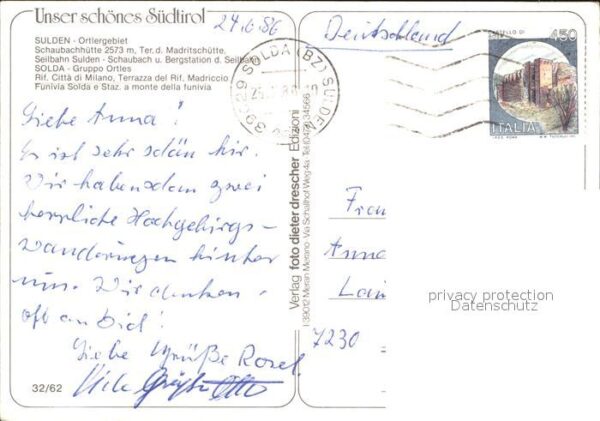 Unser schönes Südtirol
24.6.86
Deutschland
SULDEN - Ortlergebiet
Schaubachhütte 2573 m, Ter. d. Madritschütte,
Seilbahn Sulden - Schaubach u. Bergstation d. Seilbahn
SOLDA - Gruppo Ortles
Rif. Città di Milano, Terrazza del Rif. Madriccio
Funivia Solda e Staz. a monte della funivia
39029 SOLDA (BZ) SULDEN
450
ITALIA
Liebe Anna!
Es ist sehr schön hir.
Wir haben schon zwei
herrliche Hochgebirgs-
wanderungen hinter
uns. Wir denken
oft an Dich!
Liebe Grüße Rosel.
Otto
32/62
Verlag foto dieter drescher Edizioni
I 39012 Meran Merano Via Schallhof Weg 4a Tel.
Frau
Anna
7230
privacy protection
Datenschutz